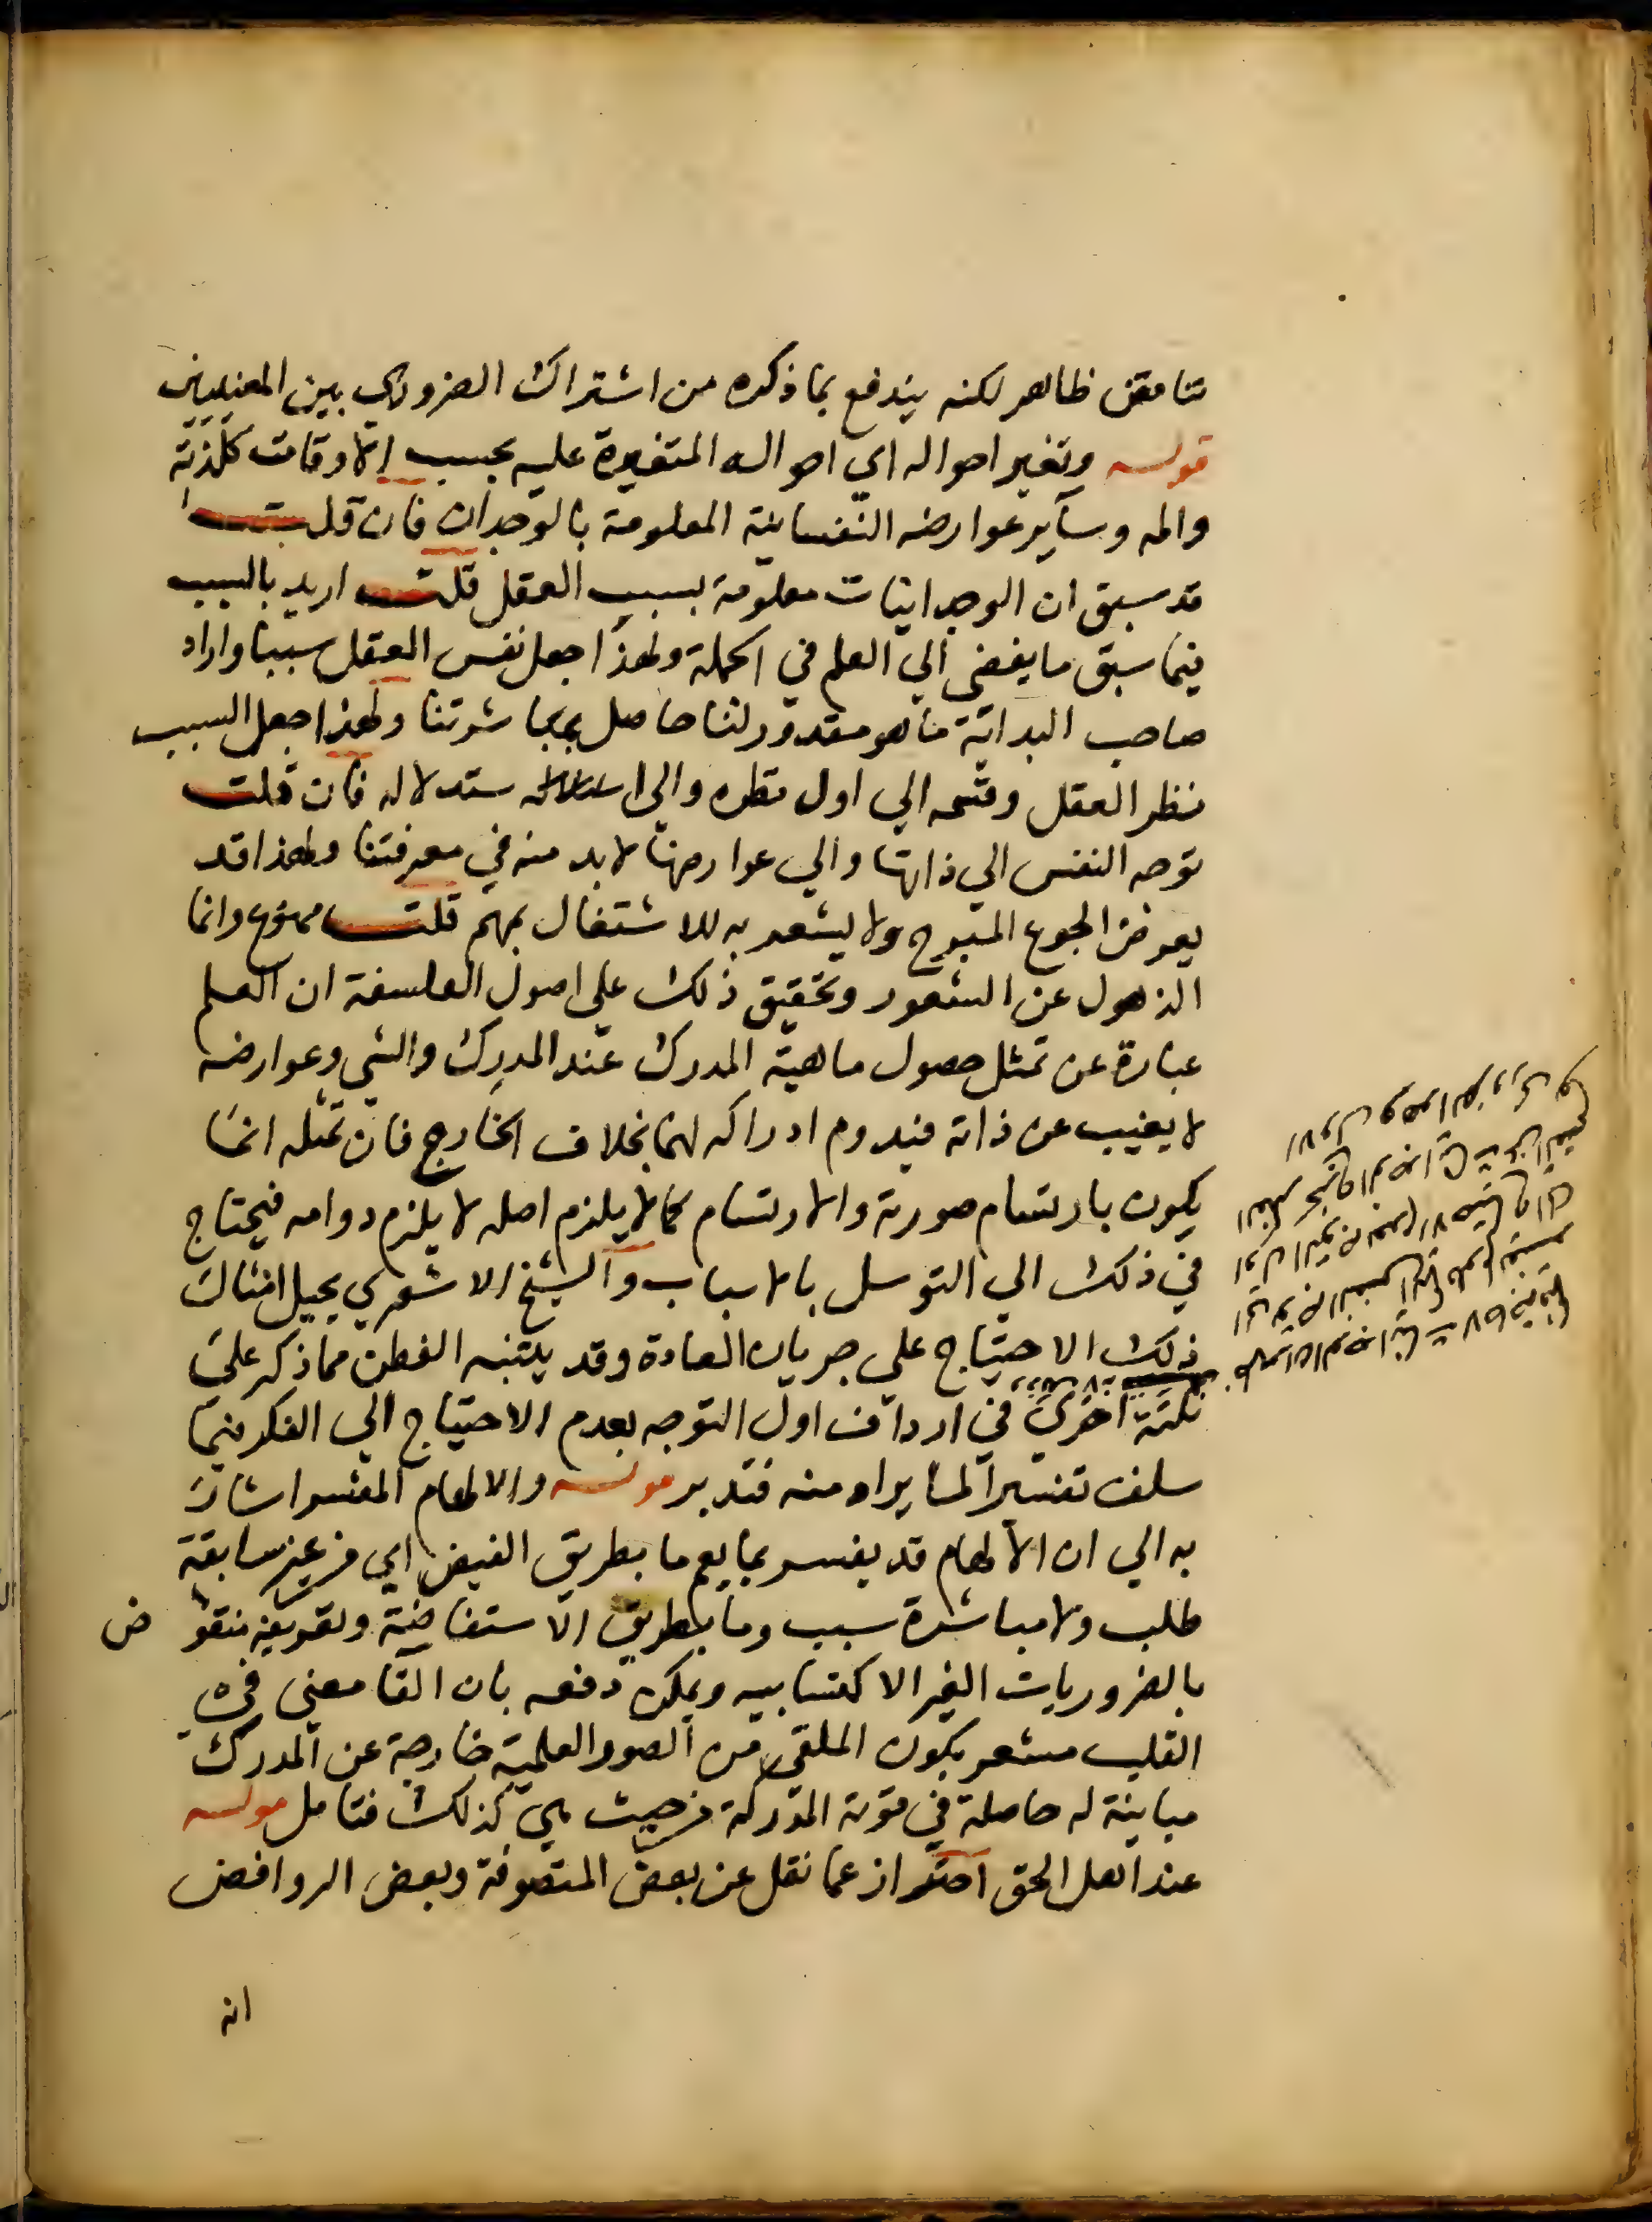 تناقض ظاهر لكنه يندفع بما ذكره من اشتراك الضروري بين المعنيين
قوله وتغير احواله اي احواله المتغيرة عليه بحسب الاوقات كلذته
والمه وساير عوارضه النفسانية المعلومة بالوجدان فان قلت
قد سبق ان الوجدانيات معلومة بسبب العقل قلت اريد بالسبب
فيما سبق ما يفضي الي العلم في الجملة ولهذا جعل نفس العقل سببا واراد
صاحب البداية ما هو مقدور لنا حاصل بمباشرتنا ولهذا جعل السبب
نظر العقل وقسمه الي اول نظره والي استدلاله فان قلت
توجه النفس الي ذاتها والي عوارضها لا بد منه في معرفتنا ولهذا قد
يعرض الجوع المبرح ولا يشعر به للاشتغال بمهم قلت ممنوع وانما
الذهول عن الشعور وتحقيق ذلك علي اصول الفلسفة ان العلم
عبارة عن تمثل حصول ماهية المدرك عند المدرك والشي وعوارضه
لا يغيب عن ذاته فيدوم ادراكه لهما بخلاف الخارج فان تمثله انما
يكون بارتسام صورته والارتسام كما لا يلزم اصله لا يلزم دوامه فيحتاج
في ذلك الي التوسل بالاسباب والشيخ الاشعري يحيل امثال
ذلك الاحتياج علي جريان العادة وقد يتنبه الفطن مما ذكر علي
نكتة اخري في ارداف اول التوجه بعدم الاحتياج الي الفكر فيما
سلف تفسيرا لما يراد منه فتدبر قوله والالهام المفسر اشار
به الي ان الالهام قد يفسر بما يعم ما بطريق الفيض اي من غير سابقة
طلب ولا مباشرة سبب وما بطريق الاستفاضة وتعريفه منقو ض
بالضروريات الغير الاكتسابيه ويمكن دفعه بان القا معني في
القلب مشعر بكون الملقي من الصور العلمية خارجة عن المدرك
مباينة له حاصلة في قوته المدركة من حيث هي كذلك فتامل قوله
عند اهل الحق احتراز عما نقل عن بعض المتصوفة وبعض الروافض
انه